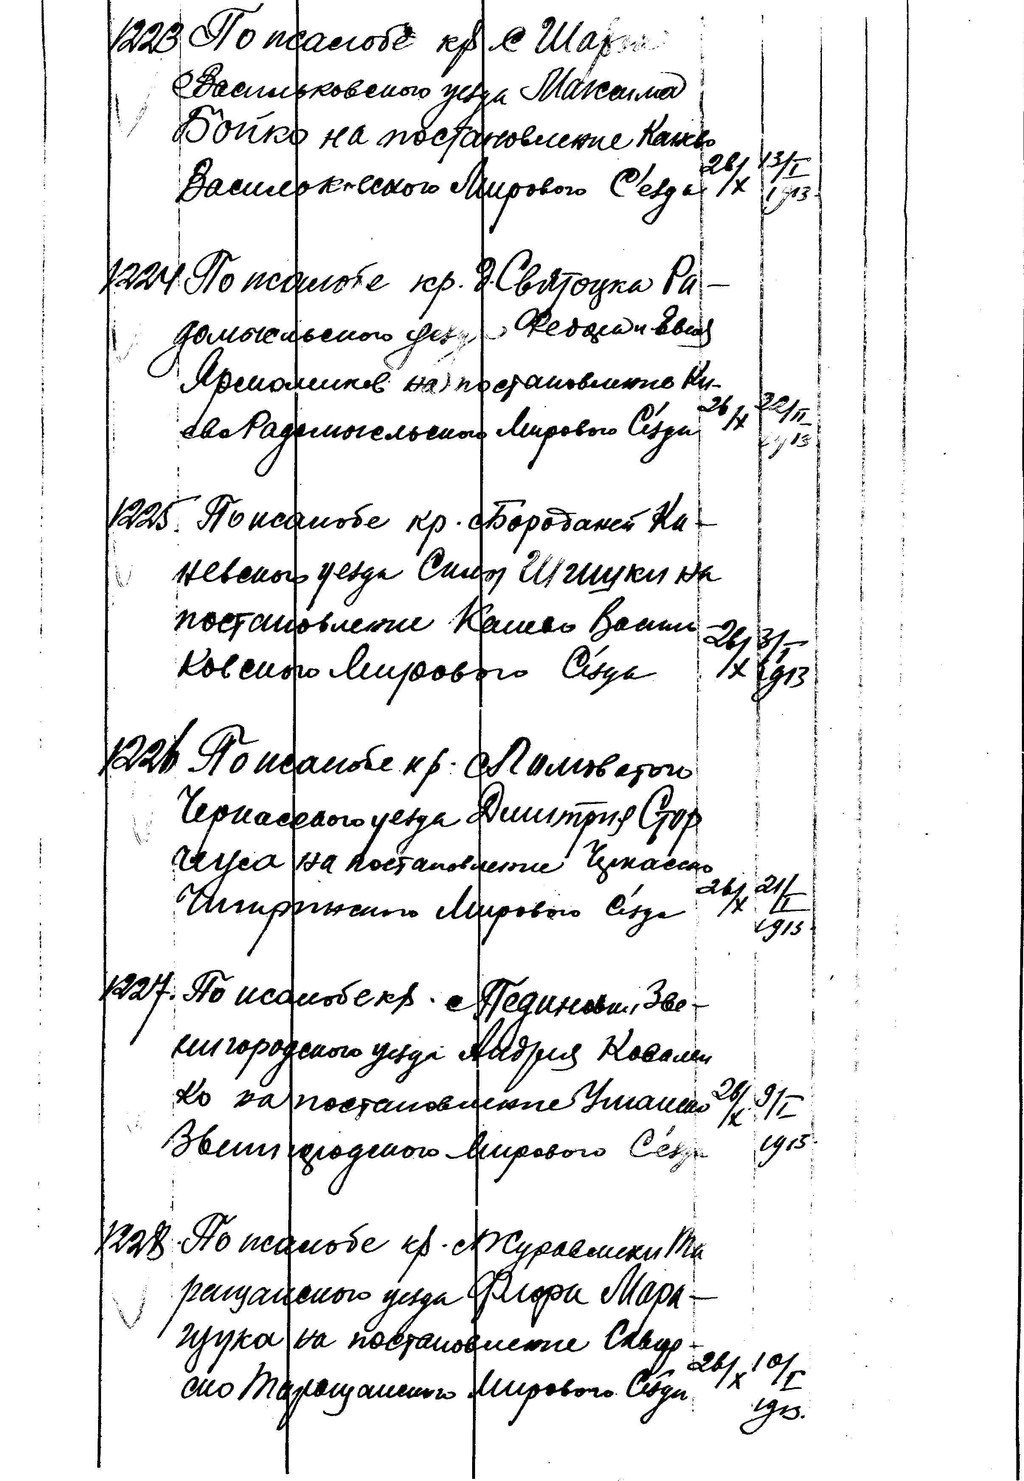 1223 По жалобе кр. с.
Васильковского уезда Максима
Бойко на постановление Канево
Васильковского Мирового С'езда 26/X 13/I 1913.
1224 По жалобе кр. д. Святоцка Ра-
домысльского уезда Федоры и
на постановление Ки-
ево Радомысльского Мирового С'езда 26/X 22/II 1913
1225. По жалобе кр. с. Бороданей Ка-
невского уезда на
постановление Канево Василь
ковского Мирового С'езда 26/X 3/I 1913
1226 По жалобе кр. с.
Черкасского уезда Дмитрия Стор
чеуса на постановление Черкасско
Чигиринского Мирового С'езда 26/X 21/II 1913.
1227. По жалобе кр. с. Пединовки, Зве-
нигородского уезда Андрея Ковален
ко на постановление Уманско 26/X 9/I
Звенигородского Мирового С'езда 1913.
1228. По жалобе кр. с. Журавлихи Та
ращанского уезда Флора Мара-
щука на постановление Сквир-
ско Таращанского Мирового С'езда 26/X 10/I
1913.